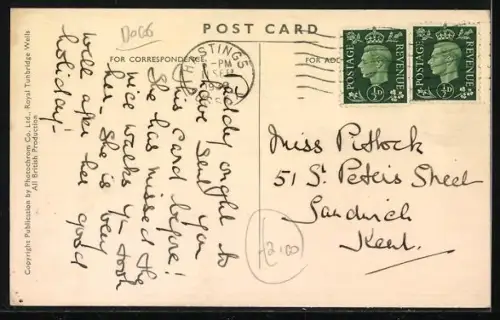 POST CARD
DOGS
FOR CORRESPONDENCE
HASTINGS
PM
SEP
FOR ADD
POSTAGE REVENUE
½D
POSTAGE REVENUE
½D
Teddy ought to
have sent you
this card before!
She has missed the
nice walks you took
her. She is very
well after her good
holiday!
Miss Pittock
51 St Peters Street
Sandwich
Kent.
£2.00
Copyright Publication by Photochrom Co. Ltd., Royal Tunbridge Wells
All British Production